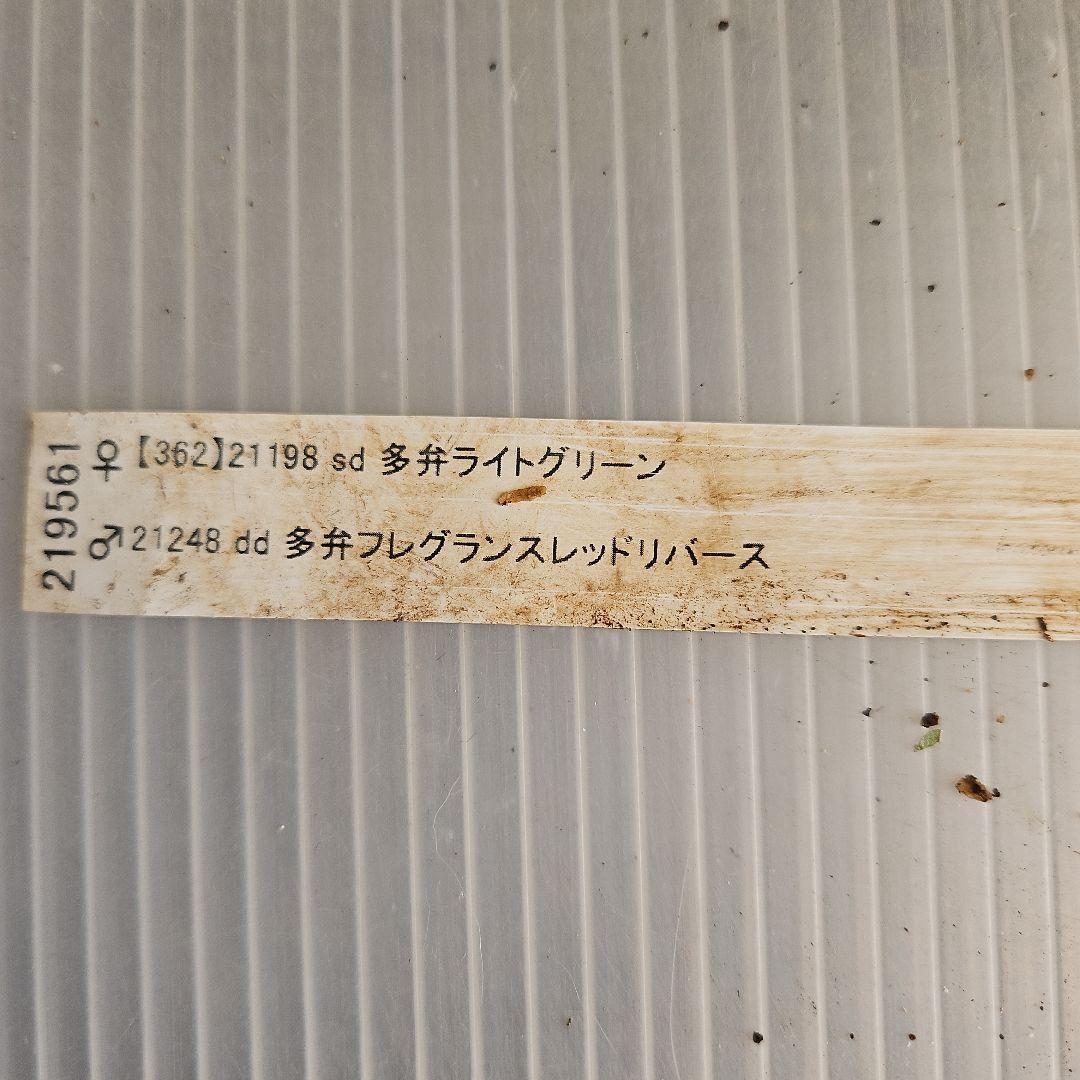 219561
♀【362】21198 sd 多弁ライトグリーン
♂21248 dd 多弁フレグランスレッドリバース